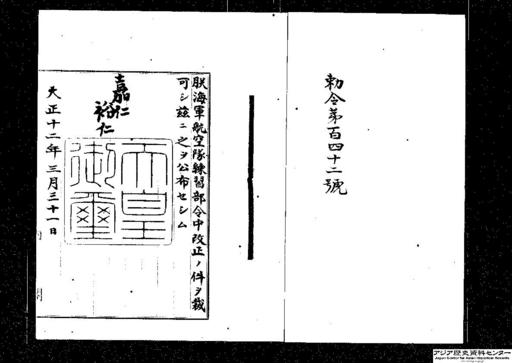 勅令第百四十二號
朕海軍航空隊練習部令中改正ノ件ヲ裁
可シ茲ニ之ヲ公布セシム
嘉仁
裕仁
天皇
御璽
大正十二年三月三十一日
アジア歴史資料センター
Japan Center for Asian Historical Records